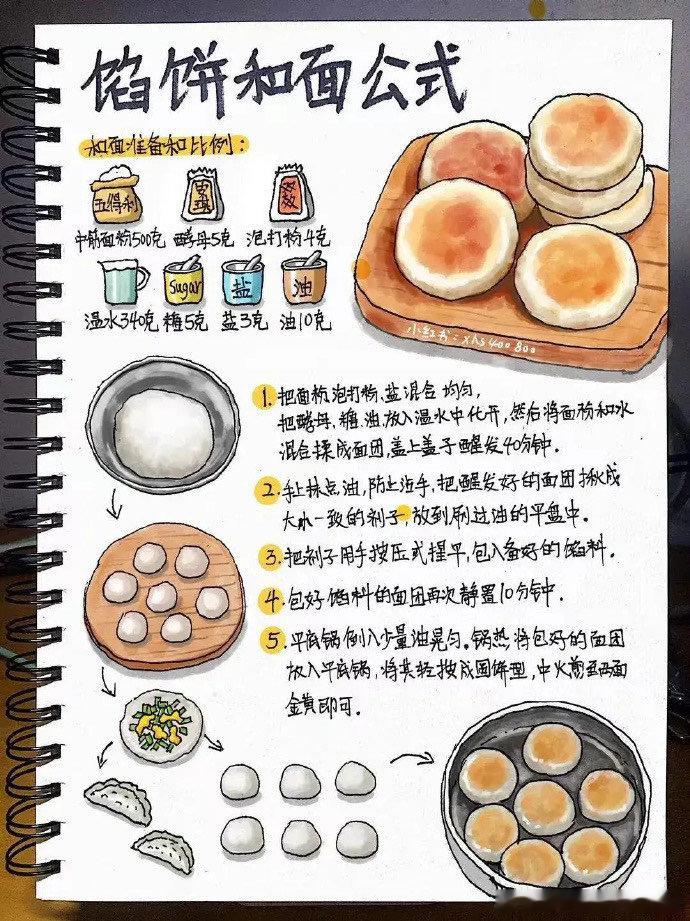 馅饼和面公式
和面准备和比例:
五得利
安琪
双效
中筋面粉500克 酵母5克 泡打粉4克
Sugar
盐
油
温水340克 糖5克 盐3克 油10克
小红书:xhs400800
1.把面粉,泡打粉、盐混合均匀,
把酵母,糖,油放入温水中化开,然后将面粉和水
混合揉成面团,盖上盖子醒发40分钟.
2.手上抹点油,防止沾手,把醒发好的面团揪成
大小一致的剂子,放到刷过油的平盘中.
3.把剂子用手按压式捏平,包入备好的馅料.
4.包好馅料的面团再次静置10分钟.
5.平底锅倒入少量油晃匀.锅热将包好的面团
放入平底锅,将其轻按成圆饼型,中火煎至两面
金黄即可.